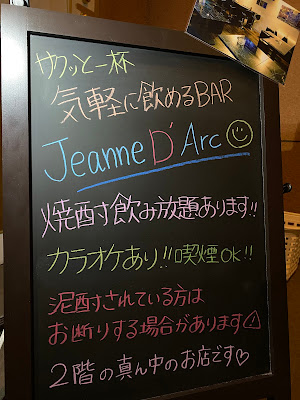 サクッと一杯
気軽に飲めるBAR
Jeanne D'Arc
焼酎飲み放題あります!!
カラオケあり!!喫煙OK!!
泥酎されている方は
お断りする場合があります
2階の真ん中のお店です♡